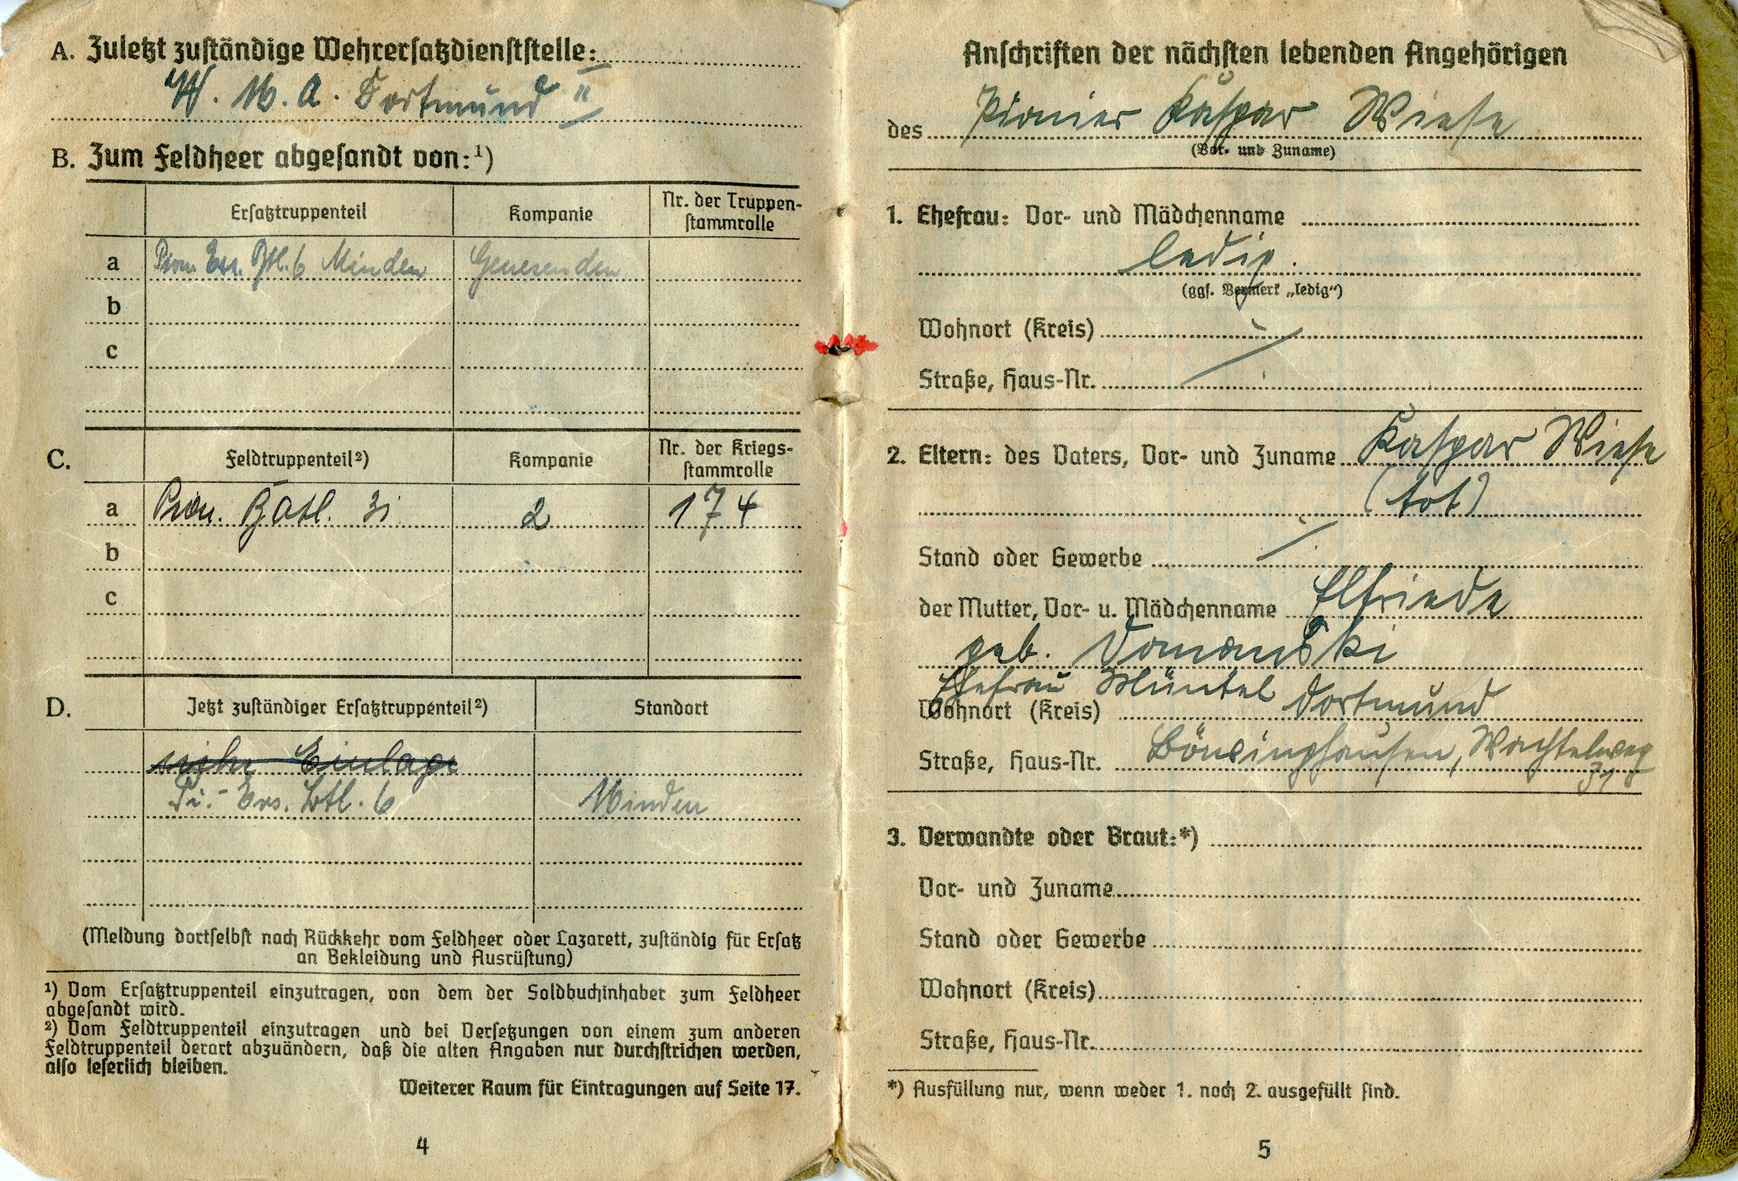 A. Zuletzt zuständige Wehrersatzdienststelle:
W. M. A. Dortmund II
B. Zum Feldheer abgesandt von:¹)
Ersatztruppenteil Kompanie Nr. der Truppen-
stammrolle
a Pion. Ers. Btl. 6 Minden Genesenden
b
c
C. Feldtruppenteil²) Kompanie Nr. der Kriegs-
stammrolle
a Pion. Batl. 31 2 174
b
c
D. Jetzt zuständiger Ersatztruppenteil²) Standort
siehe Einlage
Pi.- Ers. Btl. 6 Minden
(Meldung dortselbst nach Rückkehr vom Feldheer oder Lazarett, zuständig für Ersatz
an Bekleidung und Ausrüstung)
¹) Vom Ersatztruppenteil einzutragen, von dem der Soldbuchinhaber zum Feldheer
abgesandt wird.
²) Vom Feldtruppenteil einzutragen und bei Versetzungen von einem zum anderen
Feldtruppenteil derart abzuändern, daß die alten Angaben nur durchstrichen werden,
also leserlich bleiben.
Weiterer Raum für Eintragungen auf Seite 17.
4
Anschriften der nächsten lebenden Angehörigen
des Pionier Kaspar Wiese
(Vor- und Zuname)
1. Ehefrau: Vor- und Mädchenname
ledig.
(ggf. Vermerk „ledig“)
Wohnort (Kreis)
Straße, Haus-Nr.
2. Eltern: des Vaters, Vor- und Zuname Kaspar Wiese
(tot)
Stand oder Gewerbe
der Mutter, Vor- u. Mädchenname Elfriede
geb. Domanski
Ehefrau Müntel
Wohnort (Kreis) Dortmund
Straße, Haus-Nr. Bövinghausen, Wachtelweg
31
3. Verwandte oder Braut:*)
Vor- und Zuname
Stand oder Gewerbe
Wohnort (Kreis)
Straße, Haus-Nr.
*) Ausfüllung nur, wenn weder 1. noch 2. ausgefüllt sind.
5